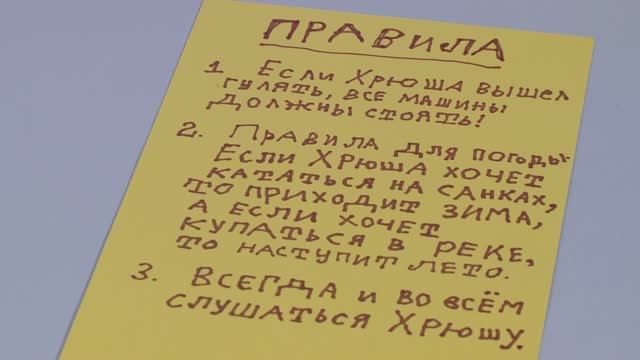 ПРАВИЛА
1. ЕСЛИ ХРЮША ВЫШЕЛ
ГУЛЯТЬ, ВСЕ МАШИНЫ
ДОЛЖНЫ СТОЯТЬ!
2. ПРАВИЛА ДЛЯ ПОГОДЫ:
ЕСЛИ ХРЮША ХОЧЕТ
КАТАТЬСЯ НА САНКАХ,
ТО ПРИХОДИТ ЗИМА,
А ЕСЛИ ХОЧЕТ
КУПАТЬСЯ В РЕКЕ,
ТО НАСТУПИТ ЛЕТО.
3. ВСЕГДА И ВО ВСЁМ
СЛУШАТЬСЯ ХРЮШУ.